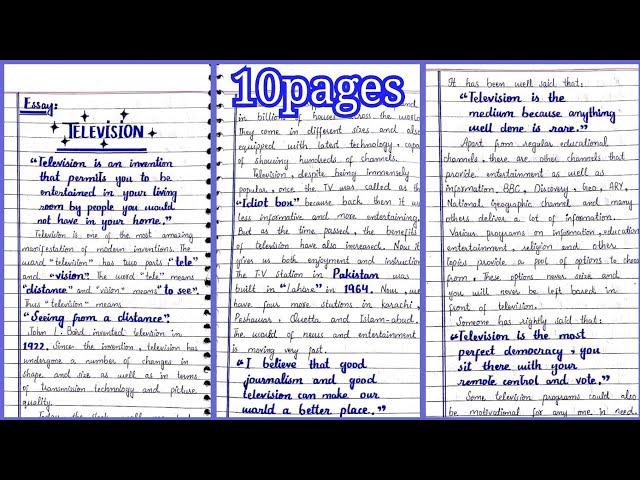 10pages
Essay:
TELEVISION
"Television is an invention
that permits you to be
entertained in your living
room by people you would
not have in your home."
Television is one of the most amazing
manifestation of modern inventions. The
word "television" has two parts; "tele"
and "vision". The word "tele" means
"distance" and "vision" means "to see".
Thus "television" means
"Seeing from a distance".
John L. Baird invented television in
1922. Since the invention, television has
undergone a number of changes in
shape and size as well as in terms
of transmission technology and picture
quality.
in billions of houses across the world
They come in different sizes and also
equipped with latest technology, capa
of showing hundreds of channels.
Television, despite being immensely
popular, once the TV was called as the
"Idiot box" because back then it w
less informative and more entertaining.
But as the time passed, the benefits
of television have also increased. Now it
gives us both enjoyment and instruction
the T.V station in Pakistan was
built in "Lahore" in 1964. Now, we
have four more stations in karachi,
Peshawar, Quetta and Islam-abad.
The world of news and entertainment
is moving very fast.
"I believe that good
journalism and good
television can make our
world a better place."
It has been well said that:
"Television is the
medium because anything
well done is rare."
Apart from regular educational
channels, there are other channels that
provide entertainment as well as
information. BBC, Discovery, Geo, ARY,
National Geographic channel and many
others deliver a lot of information.
Various programs on information, education
entertainment, religion and other
topics provide a pool of options to choose
from. These options never seize and
you will never be left bored in
front of television.
Someone has rightly said that:
"Television is the most
perfect democracy, you
sit there with your
remote control and vote."
Some television programs could also
be motivational for any one in need.